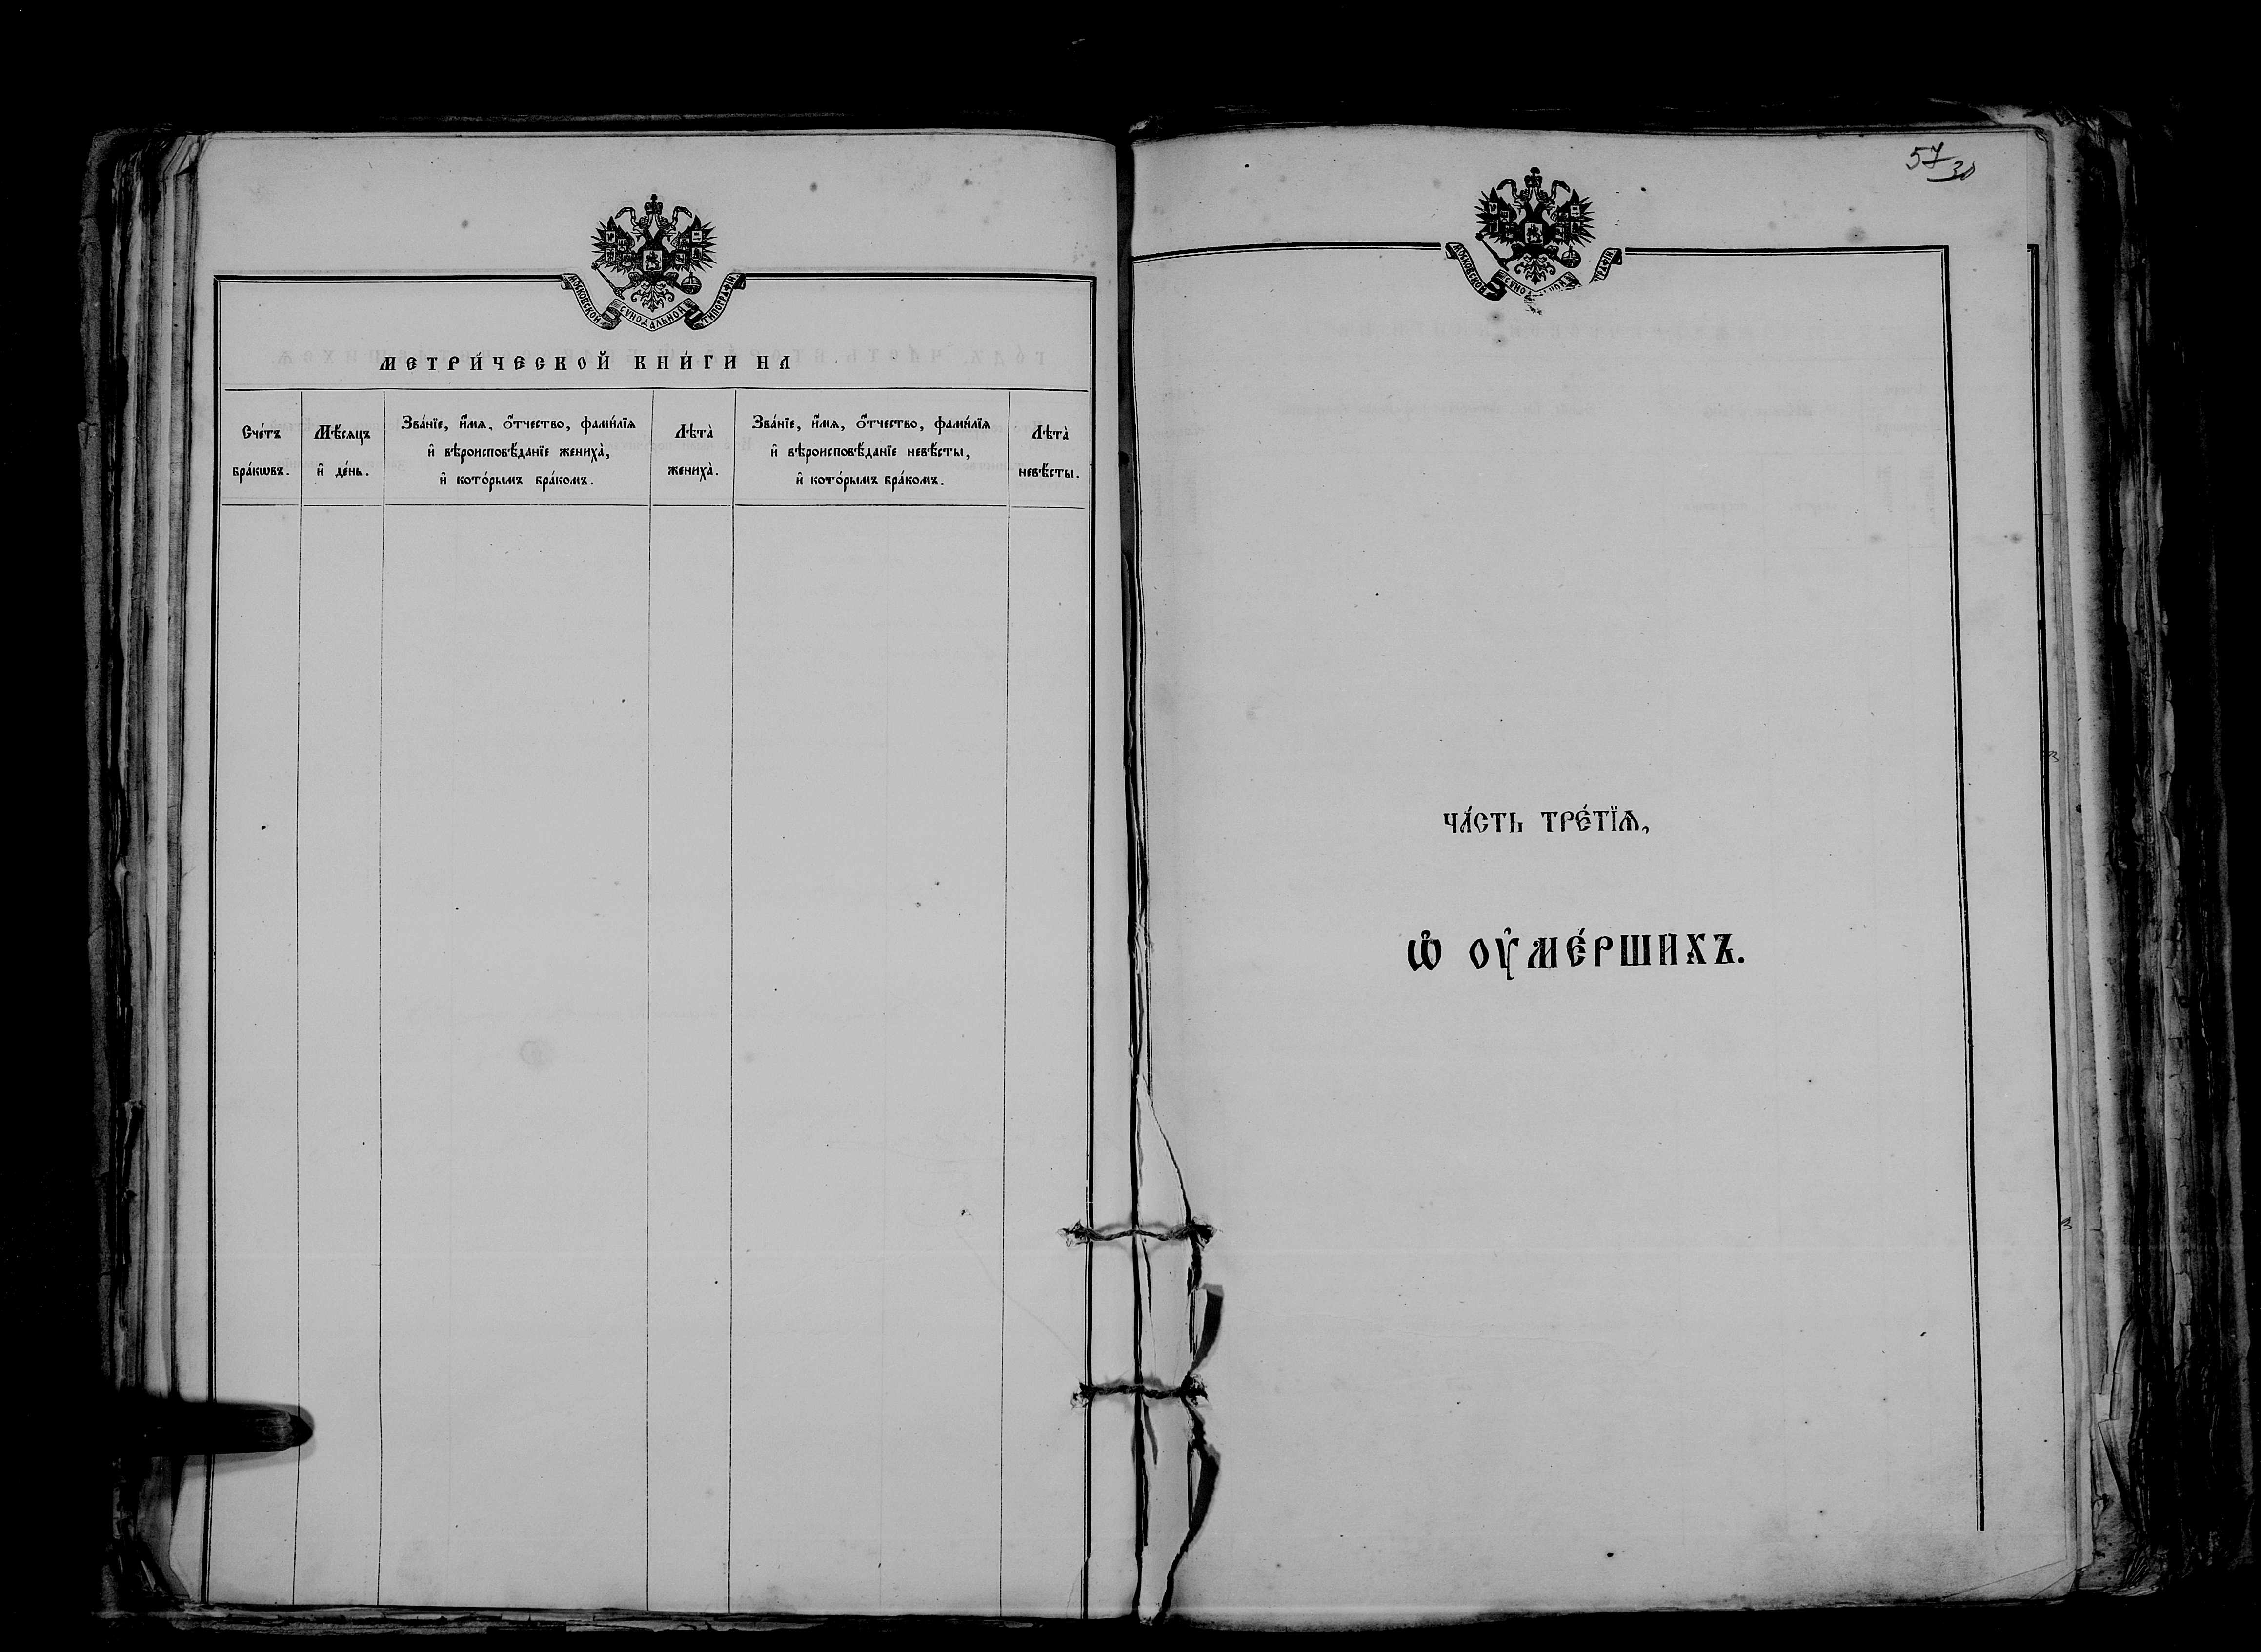 МОСКОВСКОЙ СѴНОДАЛЬНОЙ ТИПОГРАФІИ.
МЕТРИ́ЧЕСКОЙ КНИ́ГИ НА
Сче́тъ бра́кωвъ.
Мѣ́сяцъ и҆ де́нь.
Зва́нїе, и҆́мя, ѻ҆́тчество, фами́лїя
и҆ вѣроисповѣ́данїе жениха̀,
и҆ кото́рымъ бра́комъ.
Лѣта̀ жениха̀.
Зва́нїе, и҆́мя, ѻ҆́тчество, фами́лїя
и҆ вѣроисповѣ́данїе невѣ́сты,
и҆ кото́рымъ бра́комъ.
Лѣта̀ невѣ́сты.
57
30
МОСКОВСКОЙ
ЧА́СТЬ ТРЕ́ТЇѦ,
Ѡ҆ ОУ҆МЕ́РШИХЪ.